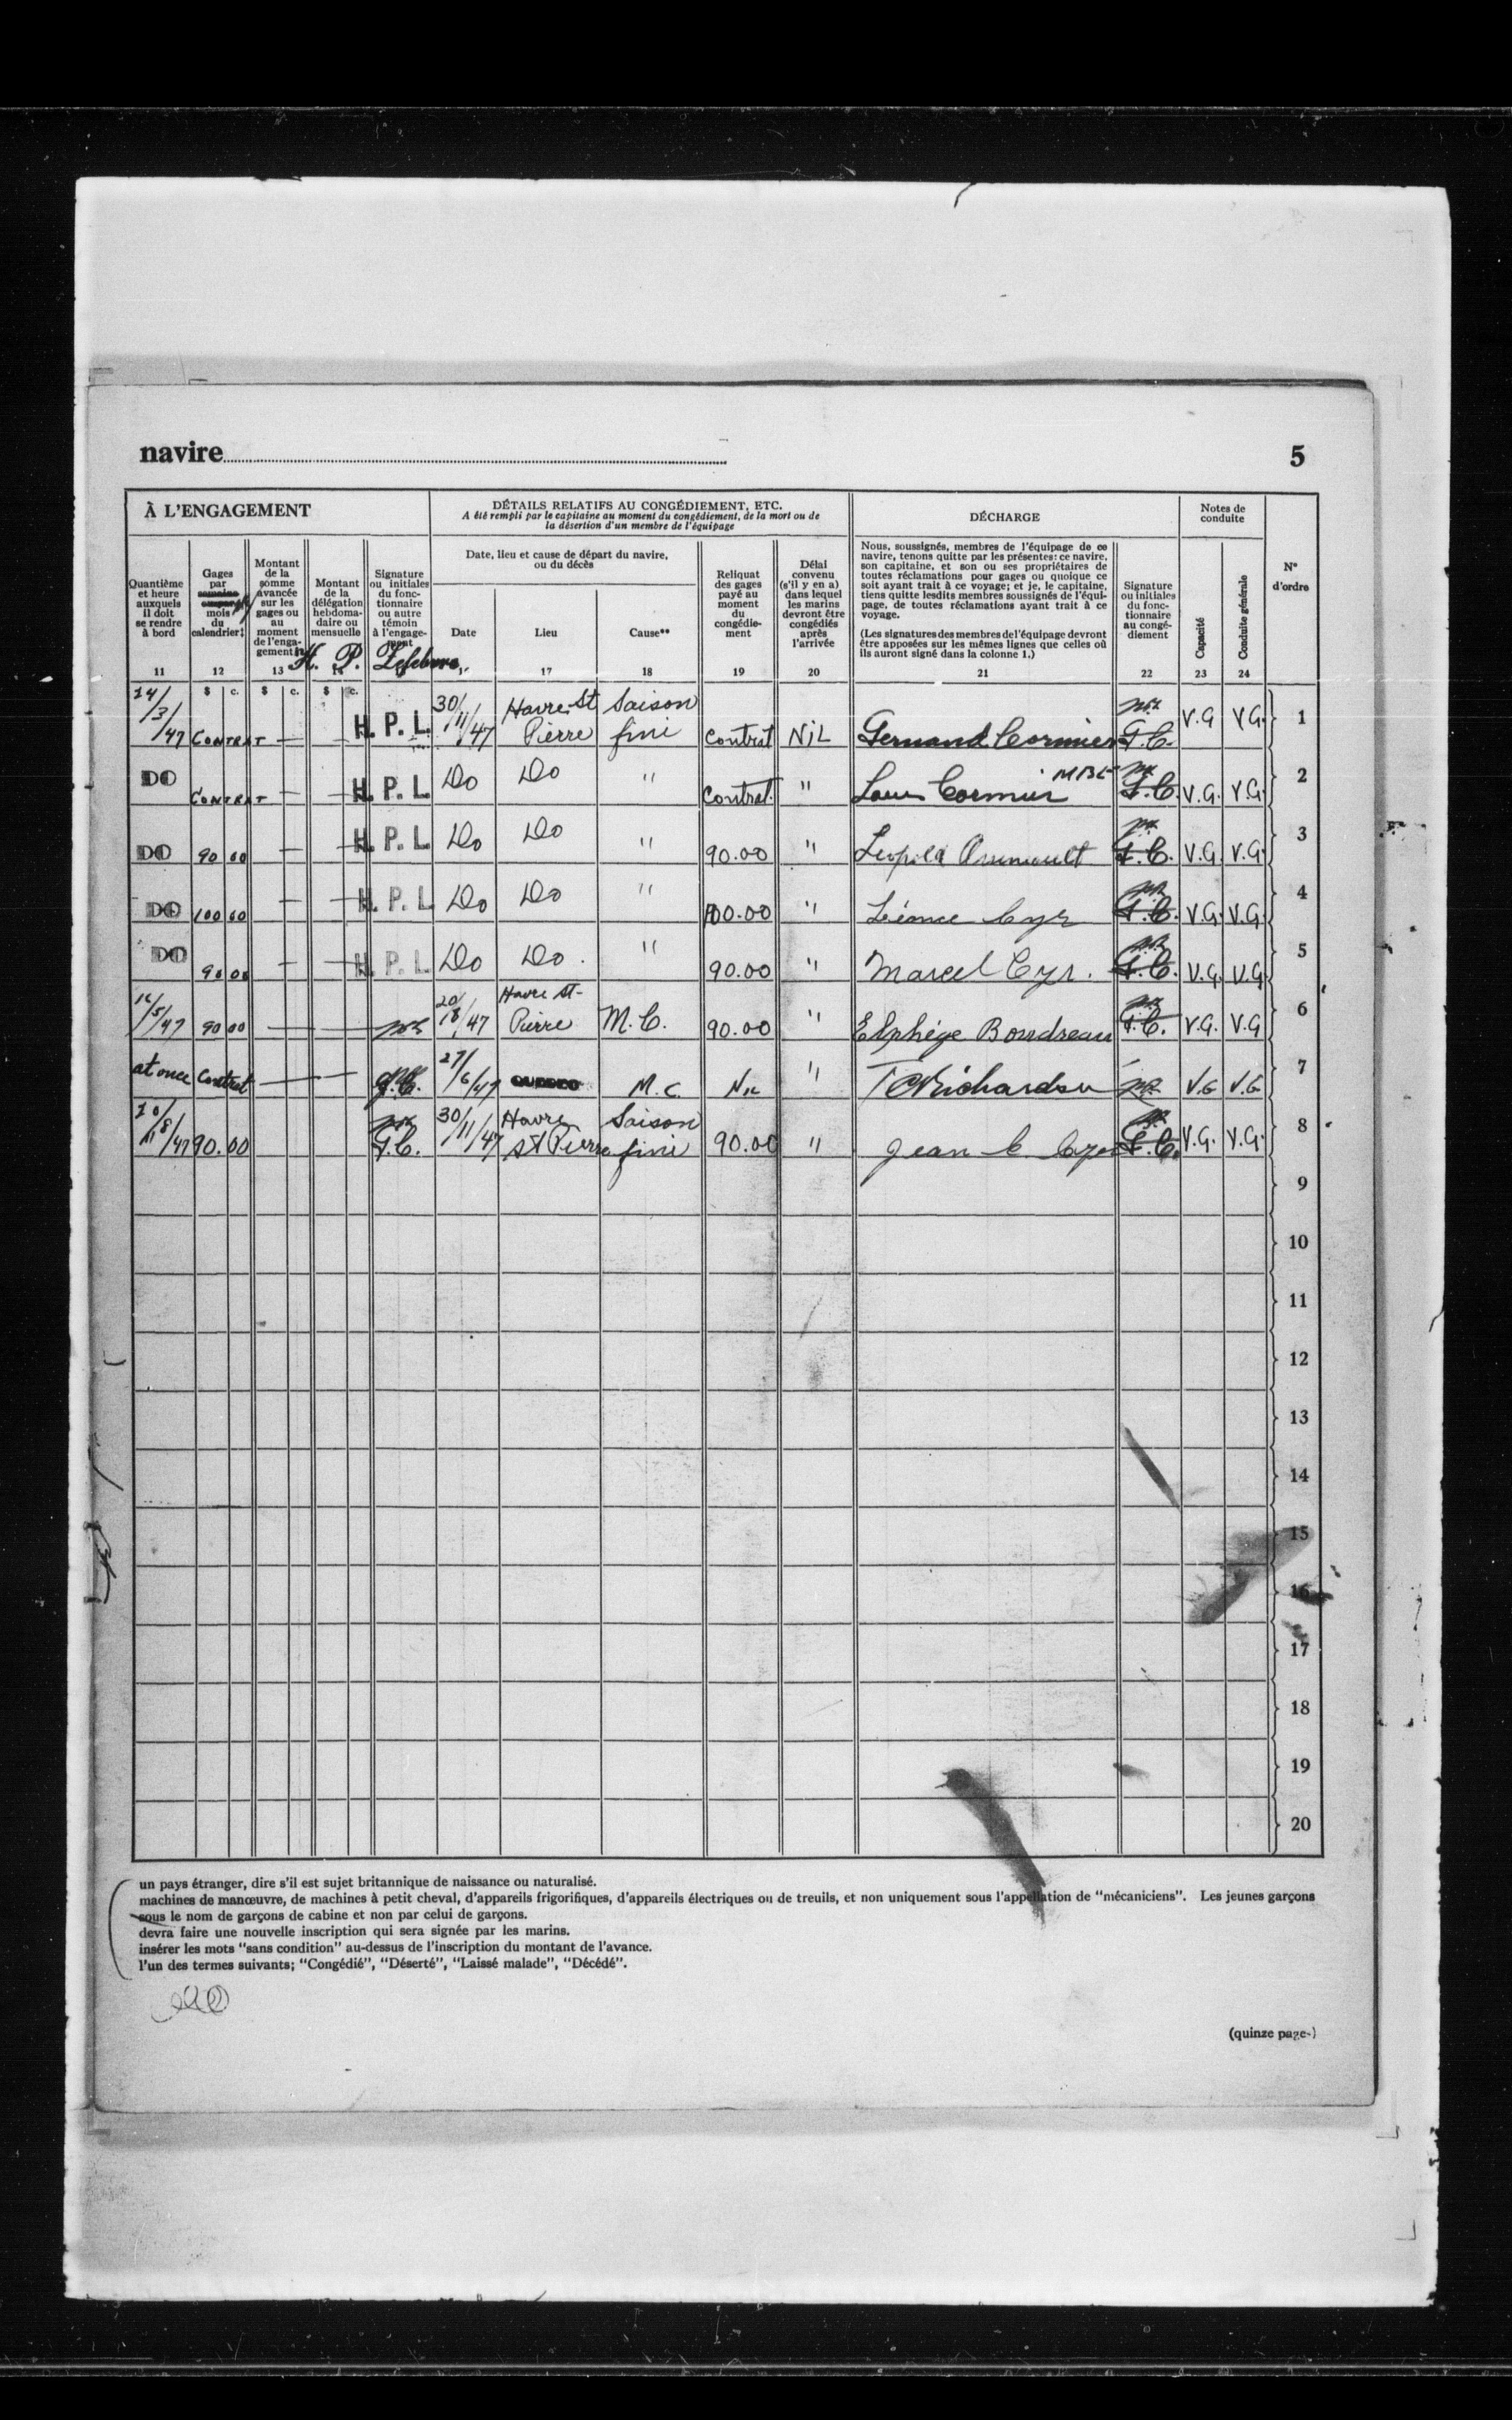 navire
5
À L'ENGAGEMENT
DÉTAILS RELATIFS AU CONGÉDIEMENT, ETC.
A été rempli par le capitaine au moment du congédiement, de la mort ou de
la désertion d'un membre de l'équipage
DÉCHARGE
Notes de
conduite
Quantième
et heure
auxquels
il doit
se rendre
à bord
11
Gages
par
semaine
mois
du
calendrier‡
12
Montant
de la
somme
avancée
sur les
gages ou
au
moment
de l'enga-
gement
13
Montant
de la
délégation
hebdoma-
daire ou
mensuelle
14
Signature
ou initiales
du fonc-
tionnaire
ou autre
témoin
à l'engage-
ment
H. P. Lefebvre
Date, lieu et cause de départ du navire,
ou du décès
Date
Lieu
17
Cause**
18
Reliquat
des gages
payé au
moment
du
congédie-
ment
19
Délai
convenu
(s'il y en a)
dans lequel
les marins
devront être
congédiés
après
l'arrivée
20
Nous, soussignés, membres de l'équipage de ce
navire, tenons quitte par les présentes: ce navire,
son capitaine, et son ou ses propriétaires de
toutes réclamations pour gages ou quoique ce
soit ayant trait à ce voyage; et je, le capitaine,
tiens quitte lesdits membres soussignés de l'équi-
page, de toutes réclamations ayant trait à ce
voyage.
(Les signatures des membres de l'équipage devront
être apposées sur les mêmes lignes que celles où
ils auront signé dans la colonne 1.)
21
Signature
ou initiales
du fonc-
tionnaire
au congé-
diement
22
Capacité
23
Conduite générale
24
N°
d'ordre
$ c. $ c. $ c.
24/3/47 CONTRAT — — H. P. L. 30/11/47 Havre St Pierre Saison fini Contrat NiL Fernand Cormier F.C. V.G V.G. 1
DO CONTRAT — — H. P. L. Do Do " Contrat. " Louis Cormier F.C. V.G. V.G. 2
DO 90 00 — — H. P. L Do Do " 90.00 " Leopold Arseneault F.C. V.G. V.G. 3
DO 100 00 — — H. P. L Do Do " 100.00 " Léonce Cyr F.C. V.G. V.G. 4
DO 90 00 — — H. P. L Do Do. " 90.00 " Marcel Cyr. F.C. V.G. V.G. 5
/5/47 90 00 — — 20/8/47 Havre St-Pierre M.C. 90.00 " Elphége Boudreau F.C. V.G. V.G 6
at once Contrat — — 27/6/47 QUEBEC M.C. " Richardson V.G V.G 7
/8/47 90.00 F.C. 30/11/47 Havre St Pierre Saison fini 90.00 " Jean C. Cyr F.C. V.G. V.G. 8
9
10
11
12
13
14
15
16
17
18
19
20
un pays étranger, dire s'il est sujet britannique de naissance ou naturalisé.
machines de manœuvre, de machines à petit cheval, d'appareils frigorifiques, d'appareils électriques ou de treuils, et non uniquement sous l'appellation de "mécaniciens". Les jeunes garçons
sous le nom de garçons de cabine et non par celui de garçons.
devra faire une nouvelle inscription qui sera signée par les marins.
insérer les mots "sans condition" au-dessus de l'inscription du montant de l'avance.
l'un des termes suivants; "Congédié", "Déserté", "Laissé malade", "Décédé".
(quinze page-)